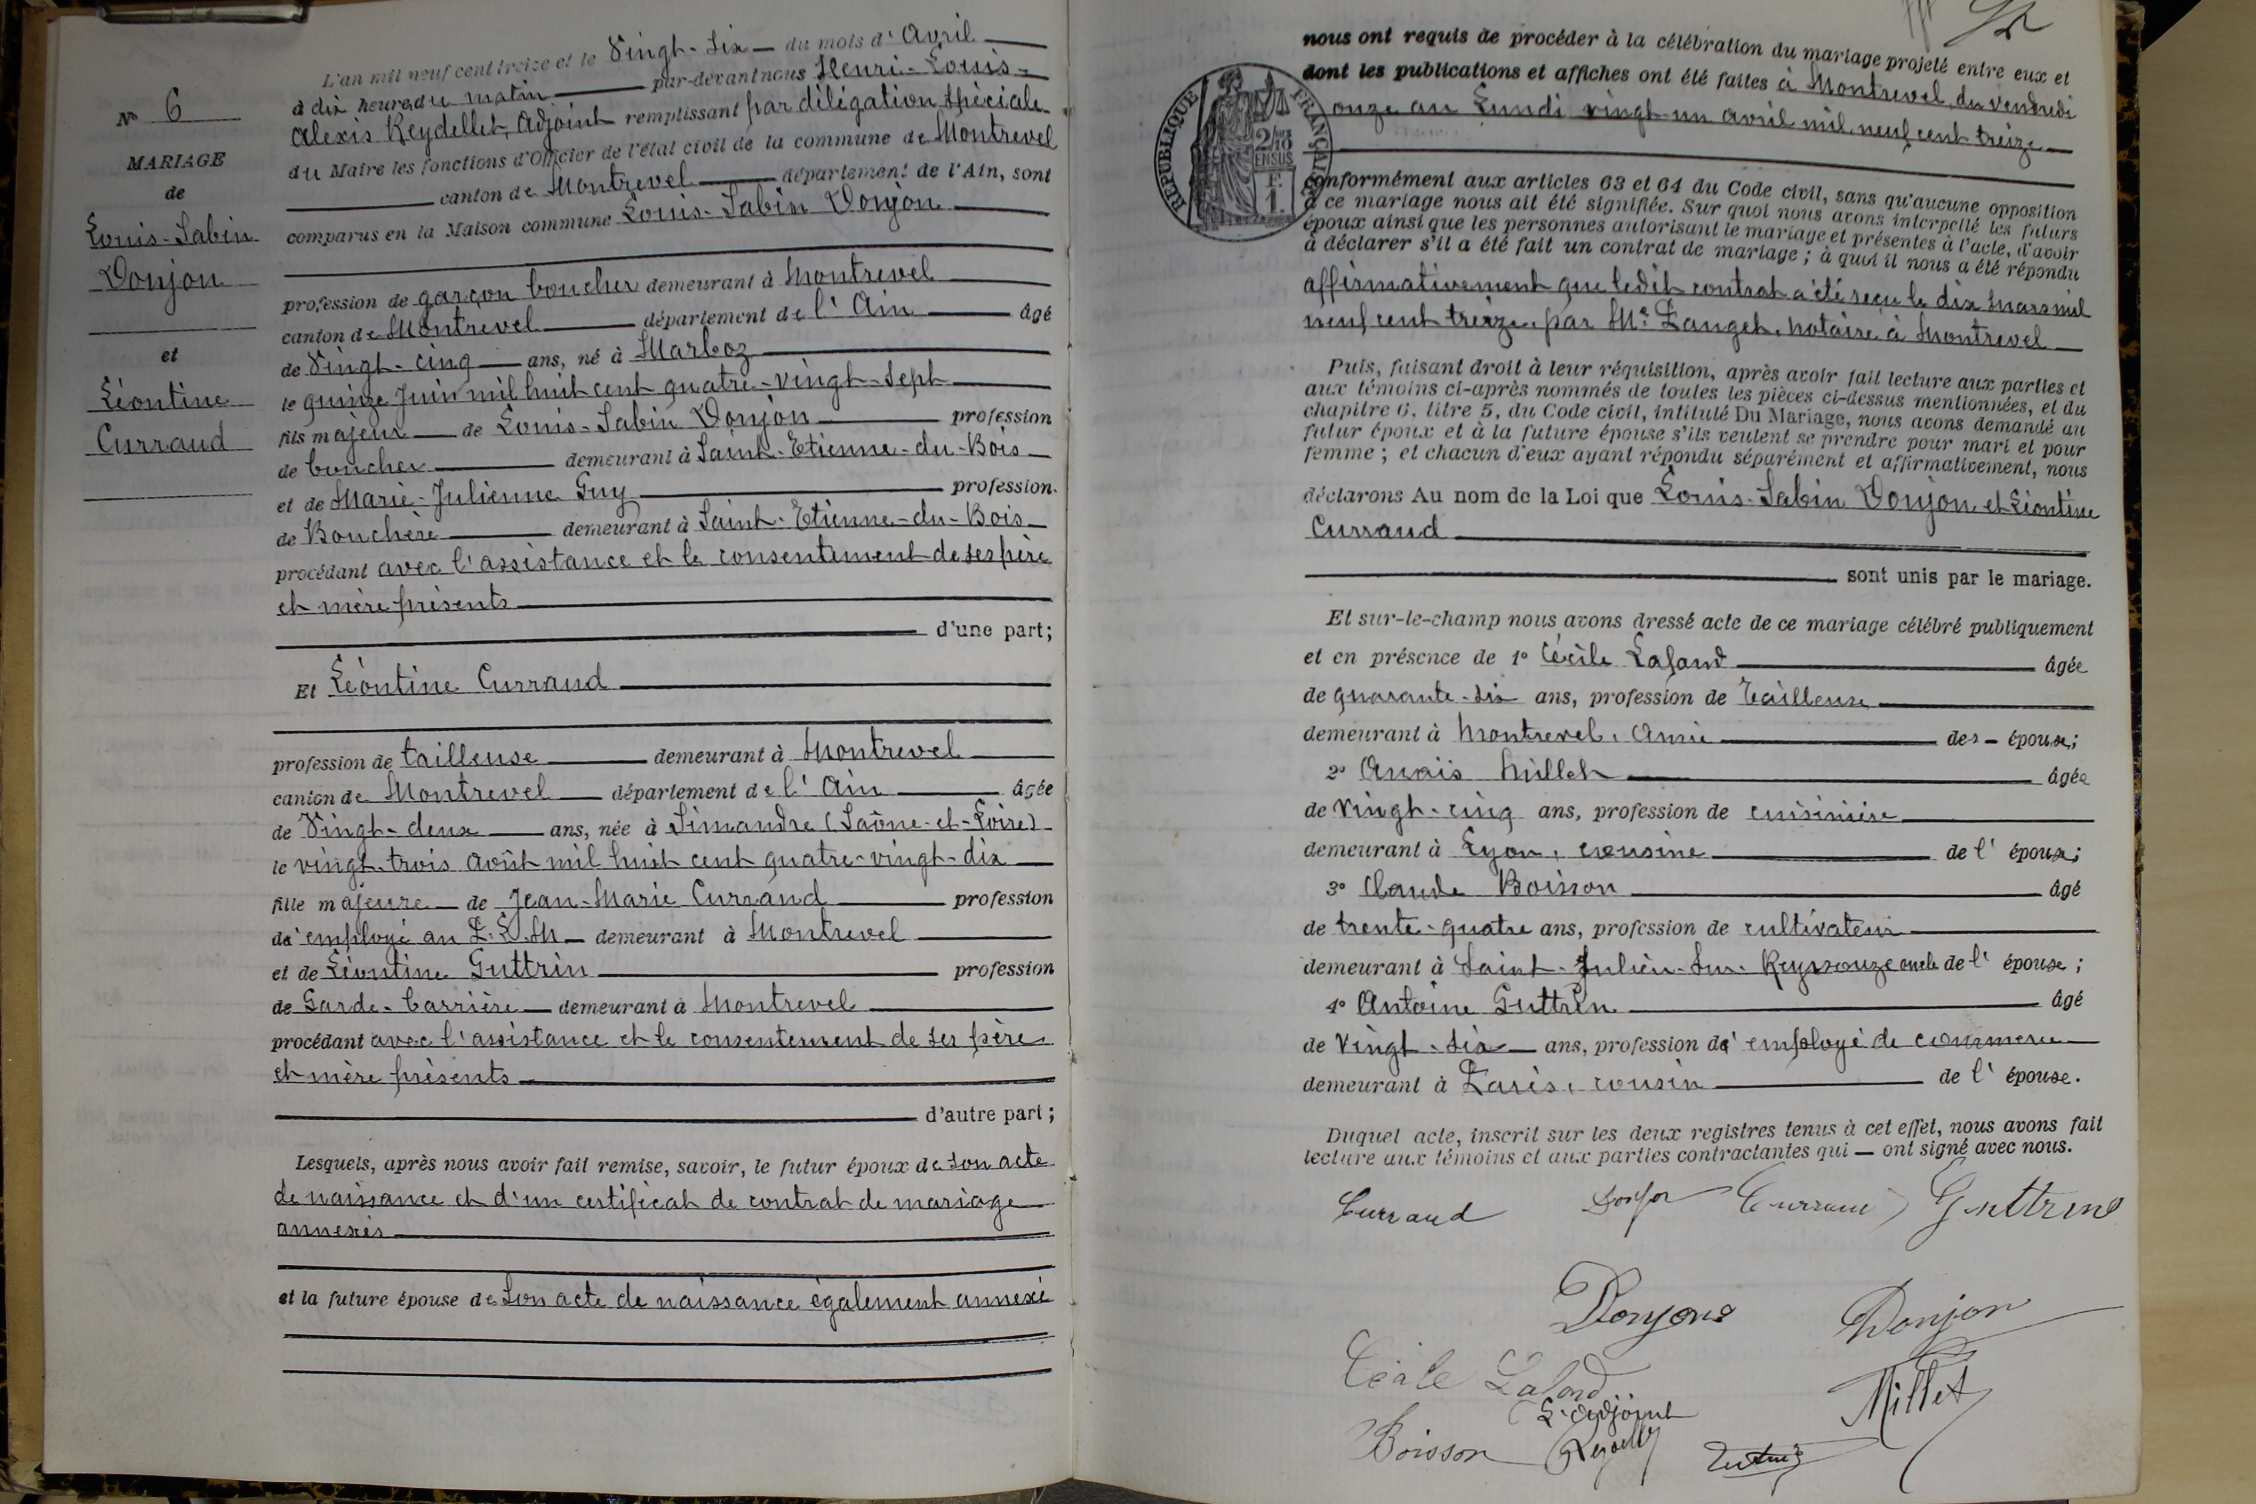 N° 6
MARIAGE
de
Louis-Sabin
Donjon
et
Léontine
Curraud
L'an mil neuf cent treize et le Vingt-six du mois d'Avril
à dix heures du matin par-devant nous Henri-Louis-
Alexis Reydellet, Adjoint remplissant par délégation spéciale
du Maire les fonctions d'Officier de l'état civil de la commune de Montrevel
canton de Montrevel département de l'Ain, sont
comparus en la Maison commune Louis-Sabin Donjon
profession de garçon boucher demeurant à Montrevel
canton de Montrevel département de l'Ain âgé
de Vingt-cinq ans, né à Marboz
le quinze Juin mil huit cent quatre-vingt-sept
fils majeur de Louis-Sabin Donjon profession
de boucher demeurant à Saint-Etienne-du-Bois
et de Marie-Julienne Guy profession
de Bouchère demeurant à Saint-Etienne-du-Bois
procédant avec l'assistance et le consentement de ses père
et mère présents
d'une part;
Et Léontine Curraud
profession de tailleuse demeurant à Montrevel
canton de Montrevel département de l'Ain âgée
de Vingt-deux ans, née à Simandre (Saône-et-Loire)
le vingt-trois août mil huit cent quatre-vingt-dix
fille majeure de Jean-Marie Curraud profession
d'employé au P.L.M demeurant à Montrevel
et de Léontine Guttrin profession
de Garde-barrière demeurant à Montrevel
procédant avec l'assistance et le consentement de ses père
et mère présents
d'autre part;
Lesquels, après nous avoir fait remise, savoir, le futur époux de son acte
de naissance et d'un certificat de contrat de mariage
annexés
et la future épouse de son acte de naissance également annexé
nous ont requis de procéder à la célébration du mariage projeté entre eux et
dont les publications et affiches ont été faites à Montrevel du vendredi
onze au Lundi vingt-un avril mil neuf cent treize
RÉPUBLIQUE FRANÇAISE
2/10
EN SUS
F.
1.
conformément aux articles 63 et 64 du Code civil, sans qu'aucune opposition
à ce mariage nous ait été signifiée. Sur quoi nous avons interpellé les futurs
époux ainsi que les personnes autorisant le mariage et présentes à l'acte, d'avoir
à déclarer s'il a été fait un contrat de mariage; à quoi il nous a été répondu
affirmativement que ledit contrat a été reçu le dix mars mil
neuf cent treize, par Me Panget, notaire à Montrevel
Puis, faisant droit à leur réquisition, après avoir fait lecture aux parties et
aux témoins ci-après nommés de toutes les pièces ci-dessus mentionnées, et du
chapitre 6, titre 5, du Code civil, intitulé Du Mariage, nous avons demandé au
futur époux et à la future épouse s'ils veulent se prendre pour mari et pour
femme; et chacun d'eux ayant répondu séparément et affirmativement, nous
déclarons Au nom de la Loi que Louis-Sabin Donjon et Léontine
Curraud
sont unis par le mariage.
Et sur-le-champ nous avons dressé acte de ce mariage célébré publiquement
et en présence de 1° Cécile Lafond âgée
de quarante-six ans, profession de Tailleuse
demeurant à Montrevel, Amie des époux;
2° Anaïs Millet âgée
de Vingt-cinq ans, profession de cuisinière
demeurant à Lyon, cousine de l'époux;
3° Claude Boisson âgé
de trente-quatre ans, profession de cultivateur
demeurant à Saint-Julien-sur-Reyssouze oncle de l'épouse;
4° Antoine Guttrin âgé
de Vingt-six ans, profession d'employé de commerce
demeurant à Paris, cousin de l'épouse.
Duquel acte, inscrit sur les deux registres tenus à cet effet, nous avons fait
lecture aux témoins et aux parties contractantes qui ont signé avec nous.
Curraud Donjon Curraud Guttrin
Donjon Donjon
Cécile Lafond Millet
L'adjoint
Boisson